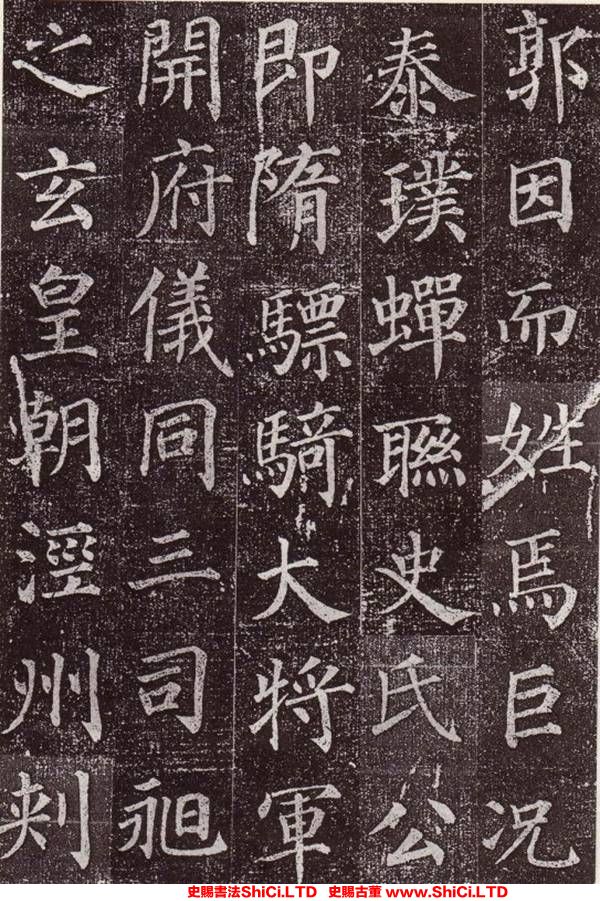 郭因而姓焉巨况
泰璞蟬聯史氏公
即隋驃騎大將軍
開府儀同三司昶
之玄皇朝涇州刺
史賜書法ShiCi.LTD 史賜古董 www.ShiCi.LTD